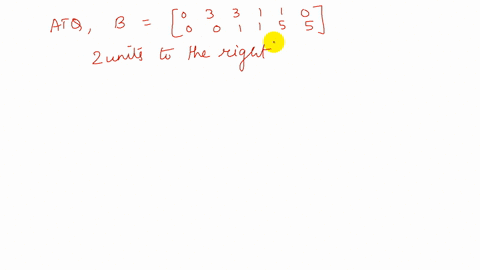 ATQ, B = [0 3 3 1 1 0
0 0 1 1 5 5]
2 units to the right